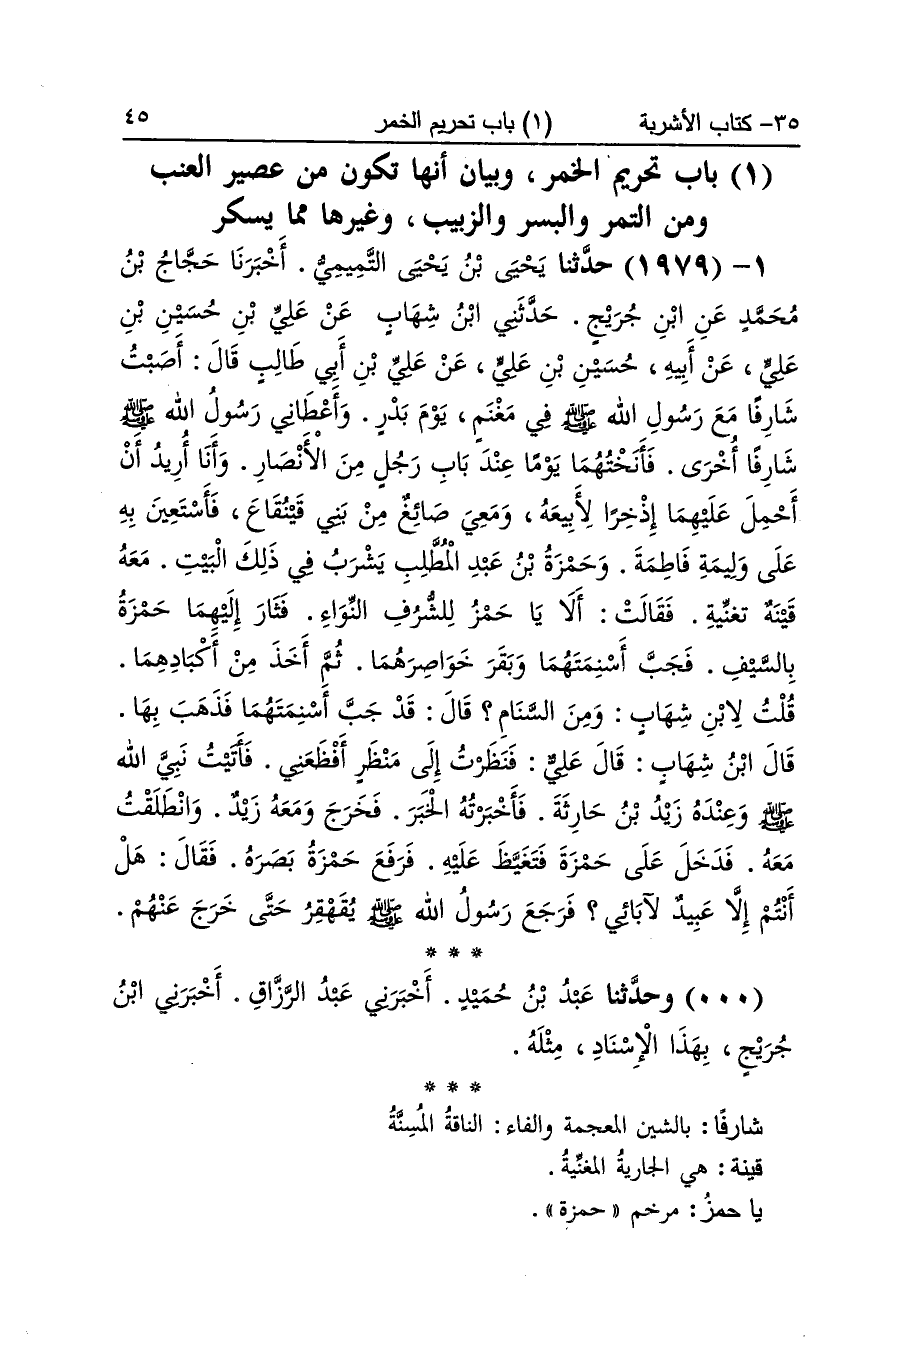 ٣٥- كتاب الأشربة (١) باب تحريم الخمر ٤٥
(١) باب تحريم الخمر ، وبيان أنها تكون من عصير العنب
ومن التمر والبسر والزبيب ، وغيرها مما يسكر
١- (١٩٧٩) حدَّثنا يَحْيَى بْنُ يَحْيَى التَّمِيمِيُّ . أَخْبَرَنَا حَجَّاجُ بْنُ
مُحَمَّدٍ عَنِ ابْنِ جُرَيْجٍ . حَدَّثَنِي ابْنُ شِهَابٍ عَنْ عَلِيِّ بْنِ حُسَيْنِ بْنِ
عَلِيٍّ ، عَنْ أَبِيهِ ، حُسَيْنِ بْنِ عَلِيٍّ ، عَنْ عَلِيِّ بْنِ أَبِي طَالِبٍ قَالَ : أَصَبْتُ
شَارِفًا مَعَ رَسُولِ الله ﷺ فِي مَغْنَمٍ ، يَوْمَ بَدْرٍ . وَأَعْطَانِي رَسُولُ الله ﷺ
شَارِفًا أُخْرَى . فَأَنَخْتُهُمَا يَوْمًا عِنْدَ بَابِ رَجُلٍ مِنَ الْأَنْصَارِ . وَأَنَا أُرِيدُ أَنْ
أَحْمِلَ عَلَيْهِمَا إِذْخِرًا لِأَبِيعَهُ ، وَمَعِيَ صَائِغٌ مِنْ بَنِي قَيْنُقَاعَ ، فَأَسْتَعِينَ بِهِ
عَلَى وَلِيمَةِ فَاطِمَةَ . وَحَمْزَةُ بْنُ عَبْدِ الْمُطَّلِبِ يَشْرَبُ فِي ذَلِكَ الْبَيْتِ . مَعَهُ
قَيْنَةٌ تغنِّيةِ . فَقَالَتْ : أَلَا يَا حَمْزُ لِلشُّرُفِ النِّوَاءِ . فَثَارَ إِلَيْهِمَا حَمْزَةُ
بِالسَّيْفِ . فَجَبَّ أَسْنِمَتَهُمَا وَبَقَرَ خَوَاصِرَهُمَا . ثُمَّ أَخَذَ مِنْ أَكْبَادِهِمَا .
قُلْتُ لِابْنِ شِهَابٍ : وَمِنَ السَّنَامِ ؟ قَالَ : قَدْ جَبَّ أَسْنِمَتَهُمَا فَذَهَبَ بِهَا .
قَالَ ابْنُ شِهَابٍ : قَالَ عَلِيٌّ : فَنَظَرْتُ إِلَى مَنْظَرٍ أَفْظَعَنِي . فَأَتَيْتُ نَبِيَّ الله
ﷺ وَعِنْدَهُ زَيْدُ بْنُ حَارِثَةَ . فَأَخْبَرْتُهُ الْخَبَرَ . فَخَرَجَ وَمَعَهُ زَيْدٌ . وَانْطَلَقْتُ
مَعَهُ . فَدَخَلَ عَلَى حَمْزَةَ فَتَغَيَّظَ عَلَيْهِ . فَرَفَعَ حَمْزَةُ بَصَرَهُ . فَقَالَ : هَلْ
أَنْتُمْ إِلَّا عَبِيدٌ لآبَائِي ؟ فَرَجَعَ رَسُولُ الله ﷺ يُقَهْقِرُ حَتَّى خَرَجَ عَنْهُمْ .
* * *
(٠٠٠) وحدَّثنا عَبْدُ بْنُ حُمَيْدٍ . أَخْبَرَنِي عَبْدُ الرَّزَّاقِ . أَخْبَرَنِي ابْنُ
جُرَيْجٍ ، بِهَذَا الْإِسْنَادِ ، مِثْلَهُ .
* * *
شارفًا : بالشين المعجمة والفاء : الناقةُ المُسِنَّةُ
قينة : هي الجاريةُ المغنِّيةُ .
يا حمزُ : مرخم « حمزة » .